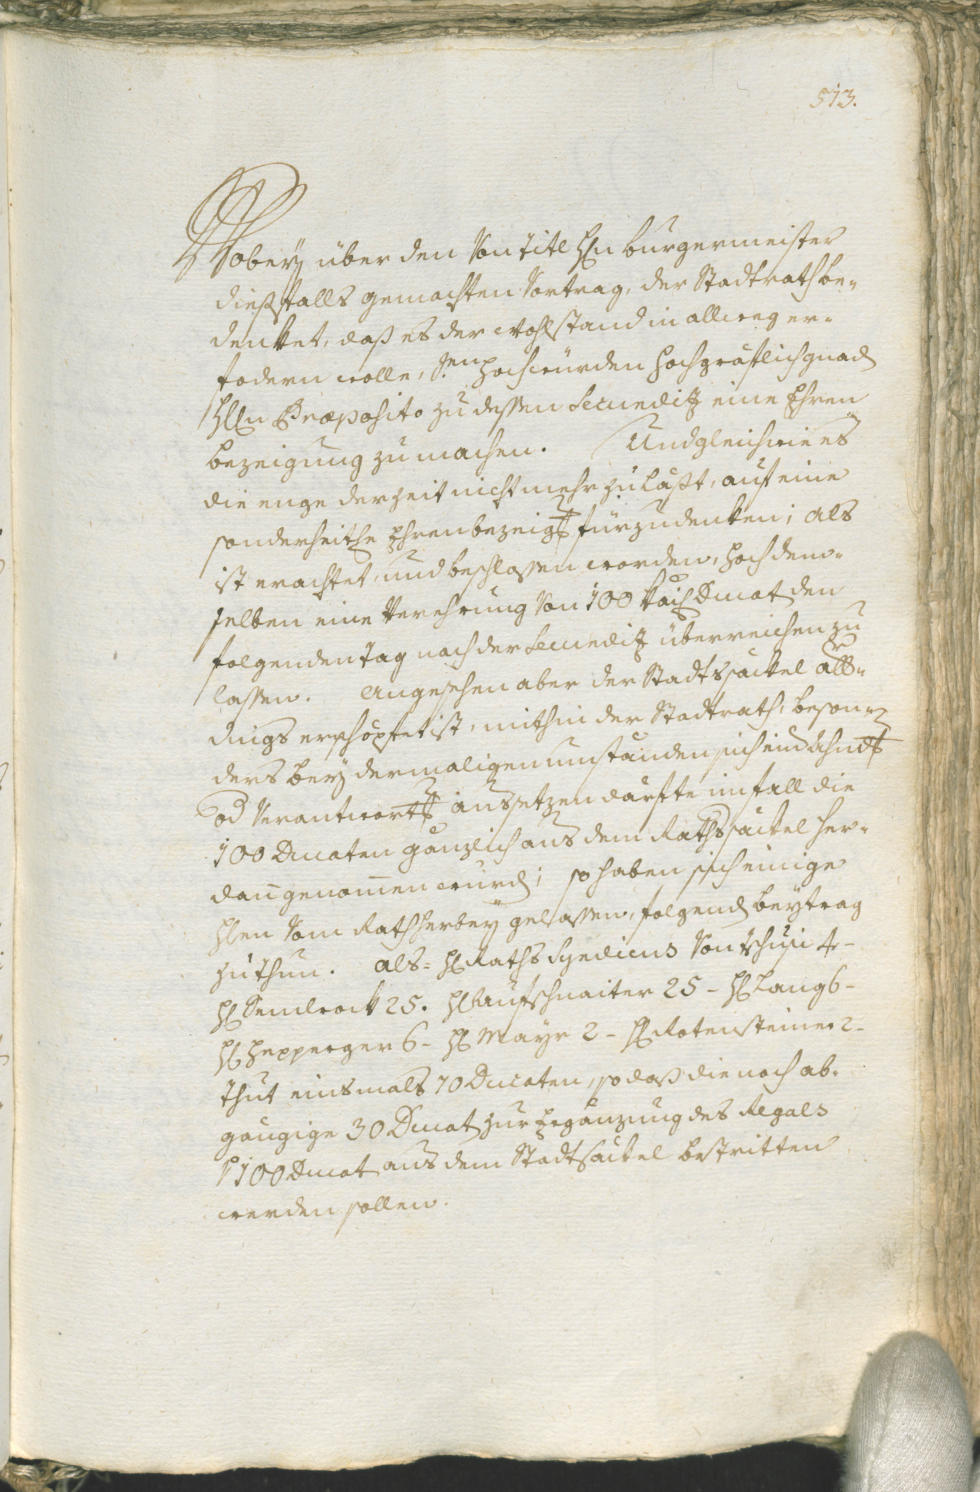 513.
Wobeÿ über den Von titl H̅n burgermeister
dießfalls gemachten Vortrag, der Stadtrath be-
denket, daß es der Wohlstand in allweg er-
fodern wolle, Sr.en Hochwürden Hochgräflich gnad
H̅n Præposito zu dessen Secundiz eine Ehren
bezeigung zu machen. Und gleichwie es
die enge der Zeit nicht mehr zulaßt, auf eine
sonderheithe Ehrenbezeig. fürzudenken; Als
ist erachtet, und beschlossen worden, Hochdem-
selben eine Verehrung Von 100 Ducat den
folgenden tag nach der Secundiz überreichen zu
lassen. Angesehen aber der Stadtssäckel all-
dings erschöpfet ist, mithin der Stadtrath, beson-
ders beÿ dermaligen umständen sich ein Ahnd.
od Verantwort. aussetzen därfte im fall die
100 Ducaten gänzlich aus dem Rathssäckel her-
dan̄ genom̄en wurd; so haben sich einige
H̅en Vom Rath herbeÿ gelassen, folgend beÿtrag
zu thun. Als: H. Raths Syndicus Von tschusi 4-
H. Semlrock 25. H. Aufschnaiter 25 - H. Lang 6-
H. Hepperger 6- H. Maÿr 2- H. Rotensteiner 2-
thut einsmals 70 Ducaten, so daß die noch ab-
gängige 30 Ducat zur Ergänzung des Regals
p 100 Ducat aus dem Stadtsäckel bestritten
werden sollen.